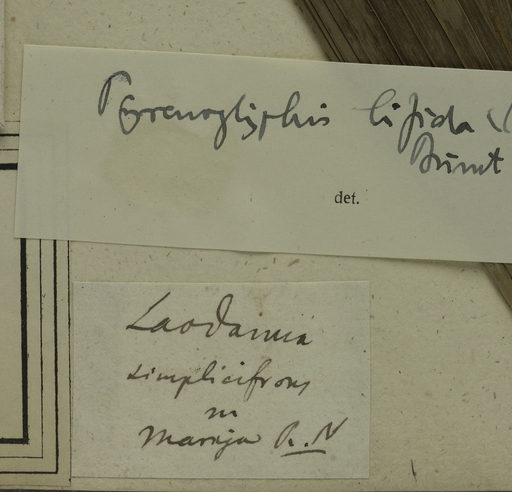 Pyrenoglyphis bifida (
Burret
det.
Laodamia
simplicifrons
m
Maraja R. N